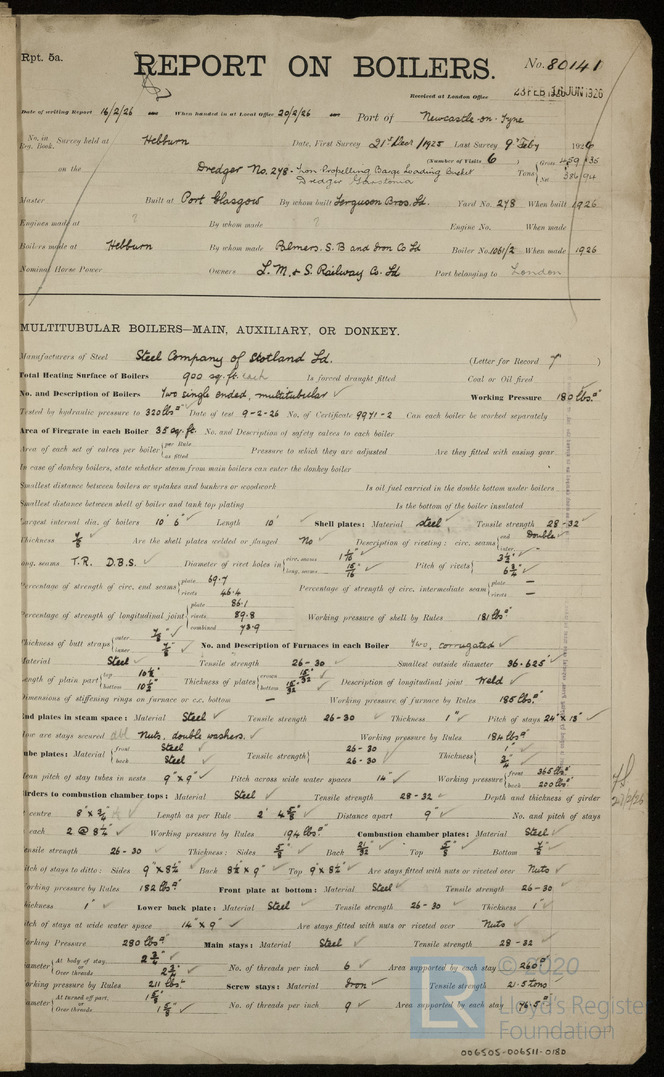 Rpt. 5a.
REPORT ON BOILERS.
No. 80141
Received at London Office 23 FEB 1926 JUN 1926
Date of writing Report 16/2/26 When handed in at Local Office 20/2/26 Port of Newcastle-on-Tyne
No. in Reg. Book. Survey held at Hebburn Date, First Survey 21st Decr 1925 Last Survey 9th Feby 1926
(Number of Visits 6 )
on the Dredger No. 278 - Non Propelling Barge Loading Bucket Dredger Tons Gross 459.35 Net 386.94
Master Built at Port Glasgow By whom built Ferguson Bros. Ld. Yard No. 278 When built 1926
Engines made at ? By whom made ? Engine No. When made
Boilers made at Hebburn By whom made Palmers. S.B and Iron Co Ld Boiler No. 1061/2 When made 1926
Nominal Horse Power Owners L. M. & S. Railway Co. Ld Port belonging to London
MULTITUBULAR BOILERS—MAIN, AUXILIARY, OR DONKEY.
Manufacturers of Steel Steel Company of Scotland Ld. (Letter for Record )
Total Heating Surface of Boilers 900 sq. ft. each Is forced draught fitted Coal or Oil fired
No. and Description of Boilers Two single ended, multitubular Working Pressure 180 lbs.□"
Tested by hydraulic pressure to 320 lbs□" Date of test 9-2-26 No. of Certificate 9941-2 Can each boiler be worked separately
Area of Firegrate in each Boiler 35 sq. ft. No. and Description of safety valves to each boiler
Area of each set of valves per boiler { per Rule as fitted Pressure to which they are adjusted Are they fitted with easing gear
In case of donkey boilers, state whether steam from main boilers can enter the donkey boiler
Smallest distance between boilers or uptakes and bunkers or woodwork Is oil fuel carried in the double bottom under boilers
Smallest distance between shell of boiler and tank top plating Is the bottom of the boiler insulated
Largest internal dia. of boilers 10' 6" Length 10' Shell plates: Material steel Tensile strength 28-32
Thickness 7/8 Are the shell plates welded or flanged No Description of riveting: circ. seams { end Double inter.
long. seams T.R. D.B.S. Diameter of rivet holes in { circ. seams 1 1/16 long. seams 15/16 Pitch of rivets { 3 1/2 6 3/4
Percentage of strength of circ. end seams { plate 69.7 rivets 46.4 Percentage of strength of circ. intermediate seam { plate — rivets —
Percentage of strength of longitudinal joint { plate 86.1 rivets 89.8 combined 73.9 Working pressure of shell by Rules 181 lbs□"
Thickness of butt straps { outer 7/8 inner 7/8 No. and Description of Furnaces in each Boiler Two, corrugated
Material Steel Tensile strength 26-30 Smallest outside diameter 36.625"
Length of plain part { top 10 1/2 bottom 10 1/2 Thickness of plates { crown 15/32 bottom 15/32 Description of longitudinal joint Weld
Dimensions of stiffening rings on furnace or c.c. bottom — Working pressure of furnace by Rules 185 lbs.□"
End plates in steam space: Material Steel Tensile strength 26-30 Thickness 1" Pitch of stays 24" x 13"
How are stays secured dbl Nuts, double washers. Working pressure by Rules 184 lbs□"
Tube plates: Material { front Steel back Steel Tensile strength { 26-30 26-30 Thickness { 1" 3/4"
Mean pitch of stay tubes in nests 9" x 9" Pitch across wide water spaces 14" Working pressure { front 365 lbs□" back 200 lbs□"
Girders to combustion chamber tops: Material Steel Tensile strength 28-32 Depth and thickness of girder
at centre 8" x 3/4" Length as per Rule 2' 4 5/8" Distance apart 9" No. and pitch of stays
in each 2 @ 8 1/4" Working pressure by Rules 194 lbs.□" Combustion chamber plates: Material Steel
Tensile strength 26-30 Thickness: Sides 5/8" Back 21/32 Top 5/8" Bottom 7/8"
Pitch of stays to ditto: Sides 9" x 8 1/2" Back 8 1/2" x 9" Top 9" x 8 1/4" Are stays fitted with nuts or riveted over Nuts
Working pressure by Rules 182 lbs□" Front plate at bottom: Material Steel Tensile strength 26-30
Thickness 1" Lower back plate: Material Steel Tensile strength 26-30 Thickness 1"
Pitch of stays at wide water space 14" x 9" Are stays fitted with nuts or riveted over Nuts
Working Pressure 280 lbs□" Main stays: Material Steel Tensile strength 28-32
Diameter { At body of stay, or Over threads 2 3/4" 2 3/4" No. of threads per inch 6 Area supported by each stay 260□"
Working pressure by Rules 211 lbs□" Screw stays: Material Iron Tensile strength 21.5 tons
Diameter { At turned off part, or Over threads 1 5/8" 1 5/8" No. of threads per inch 9 Area supported by each stay 76.5□"
© 2020
LR
Lloyd's Register
Foundation
006505-006511-0180